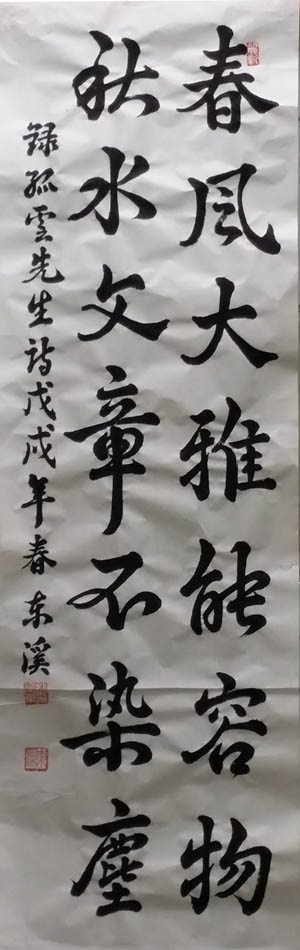 春风大雅能容物
秋水文章不染塵
録孤雲先生诗戊戌年春东溪